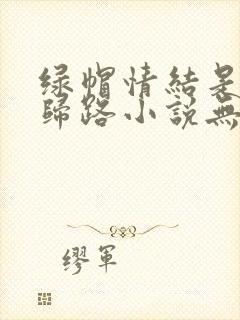 绿帽情結是
歸路小說無
缪軍